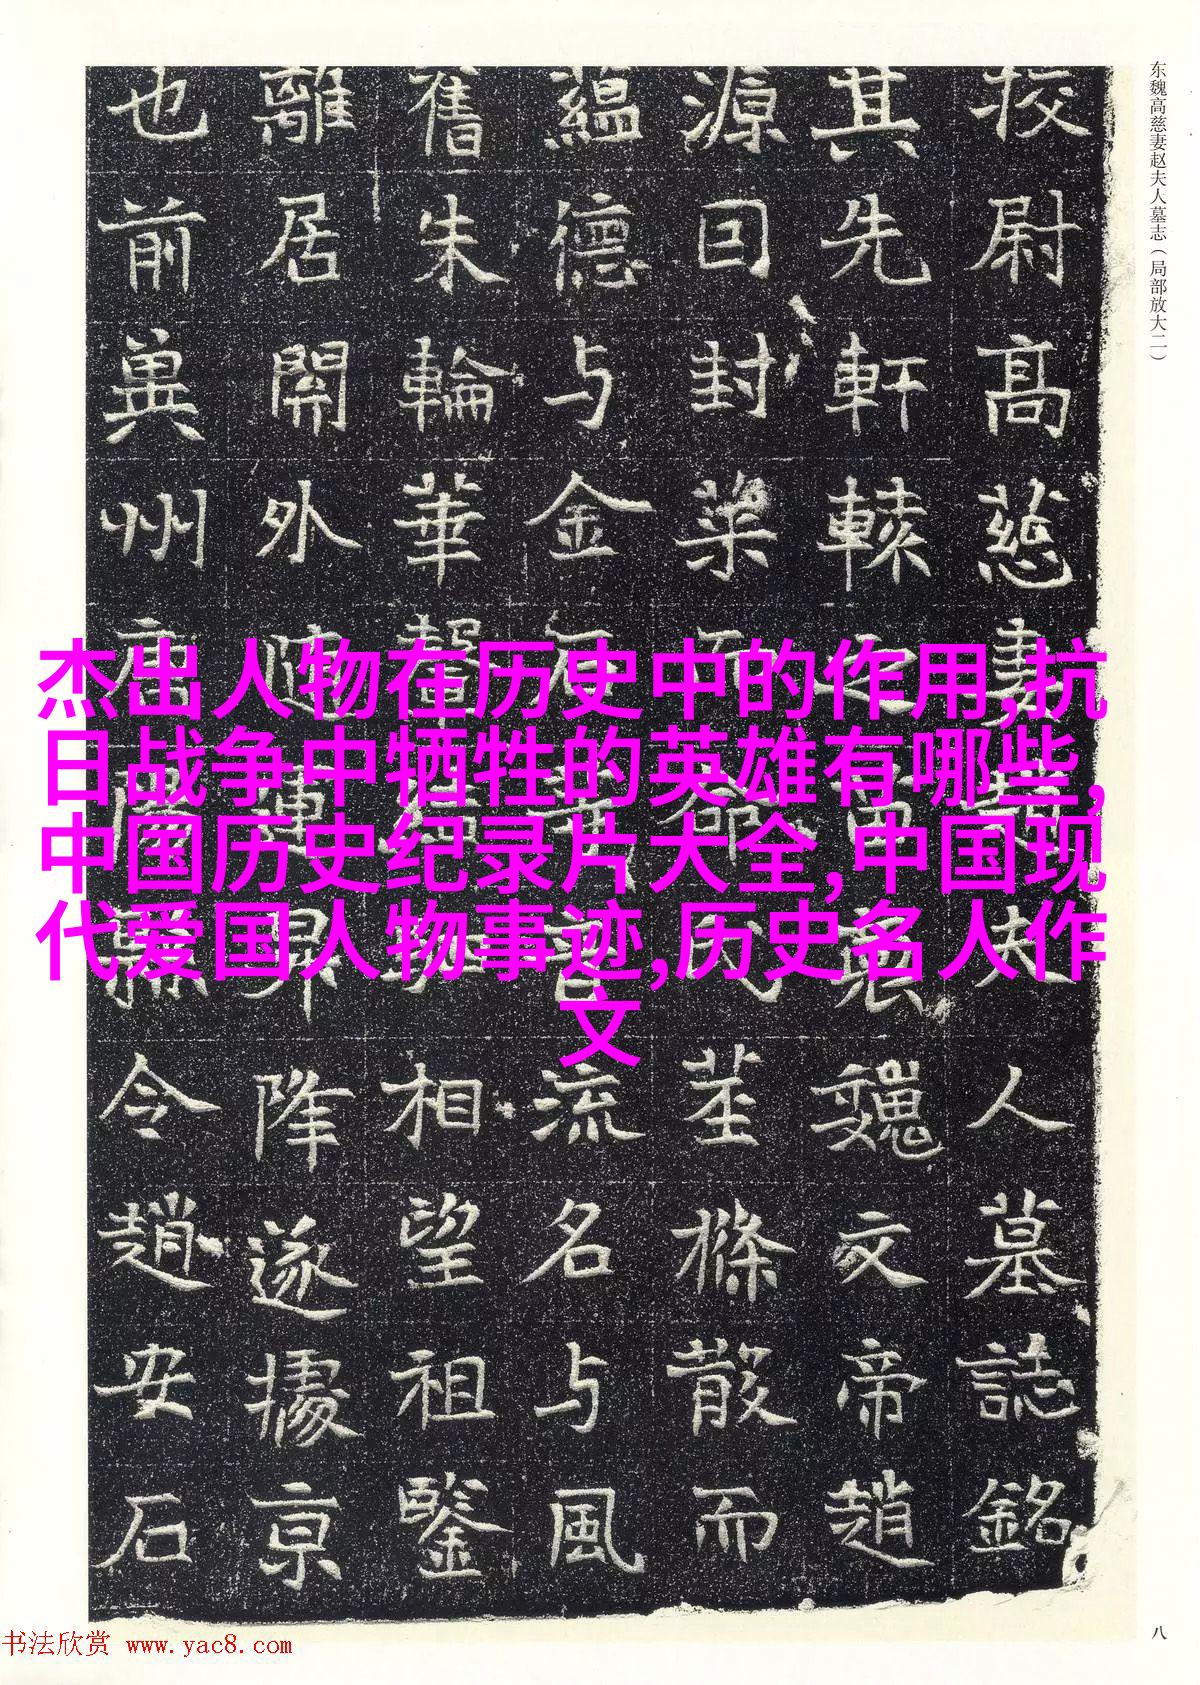 东魏高慈妻赵夫人墓志（局部放大二）
挍尉高慈妻夫人墓誌銘
其先軒轅之苗裔魏文帝趙
源囙封而氏莖條散而
蘊德与金石音流名与風
舊朱輪華轂相望祖鑒
離居開外隨運昇降遂據京
也前冀州令趙安石
杰出人物在历史中的作用,抗
日战争中牺牲的英雄有哪些,
中国历史纪录片大全,中国现
代爱国人物事迹,历史名人作
文
八
书法欣赏 www.yac8.com